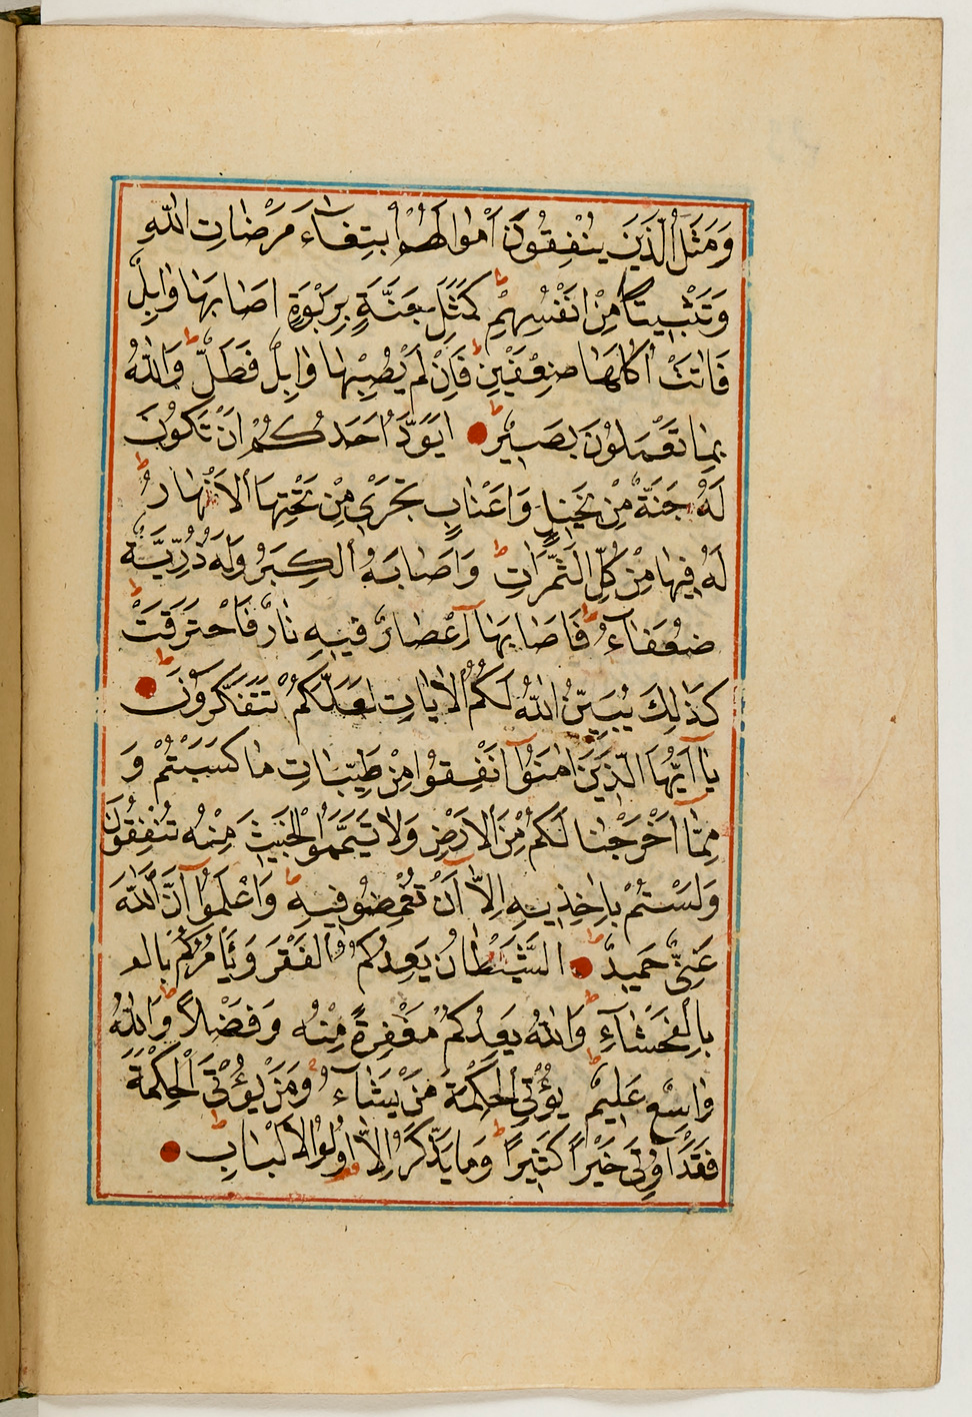 وَمَثَلُ الَّذِينَ يُنْفِقُونَ أَمْوَالَهُمُ ابْتِغَاءَ مَرْضَاتِ اللّٰهِ
وَتَثْبِيتًا مِنْ اَنْفُسِهِمْ كَمَثَلِ جَنَّةٍ بِرَبْوَةٍ اَصَابَهَا وَابِلٌ
فَاٰتَتْ اُكُلَهَا ضِعْفَيْنِ فَاِنْ لَمْ يُصِبْهَا وَابِلٌ فَطَلٌّ وَاللّٰهُ
بِمَا تَعْمَلُونَ بَصِيرٌ اَيَوَدُّ اَحَدُكُمْ اَنْ تَكُونَ
لَهُ جَنَّةٌ مِنْ نَخِيلٍ وَاَعْنَابٍ تَجْرِى مِنْ تَحْتِهَا الْاَنْهَارُ
لَهُ فِيهَا مِنْ كُلِّ الثَّمَرَاتِ وَاَصَابَهُ الْكِبَرُ وَلَهُ ذُرِّيَّةٌ
ضُعَفَاۤءُ فَاَصَابَهَا اِعْصَارٌ فِيهِ نَارٌ فَاحْتَرَقَتْ
كَذٰلِكَ يُبَيِّنُ اللّٰهُ لَكُمُ الْاٰيَاتِ لَعَلَّكُمْ تَتَفَكَّرُونَ
يَا اَيُّهَا الَّذِينَ اٰمَنُوا اَنْفِقُوا مِنْ طَيِّبَاتِ مَا كَسَبْتُمْ وَ
مِمَّا اَخْرَجْنَا لَكُمْ مِنَ الْاَرْضِ وَلَا تَيَمَّمُوا الْخَبِيثَ مِنْهُ تُنْفِقُونَ
وَلَسْتُمْ بِاٰخِذِيهِ اِلَّا اَنْ تُغْمِضُوا فِيهِ وَاعْلَمُوا اَنَّ اللّٰهَ
غَنِىٌّ حَمِيدٌ الشَّيْطَانُ يَعِدُكُمُ الْفَقْرَ وَيَاْمُرُكُمْ بِال
بِالْفَحْشَاۤءِ وَاللّٰهُ يَعِدُكُمْ مَغْفِرَةً مِنْهُ وَفَضْلًا وَاللّٰهُ
وَاسِعٌ عَلِيمٌ يُؤْتِى الْحِكْمَةَ مَنْ يَشَاءُ وَمَنْ يُؤْتَ الْحِكْمَةَ
فَقَدْ اُوتِىَ خَيْرًا كَثِيرًا وَمَا يَذَّكَّرُ اِلَّا اُولُوا الْاَلْبَابِ